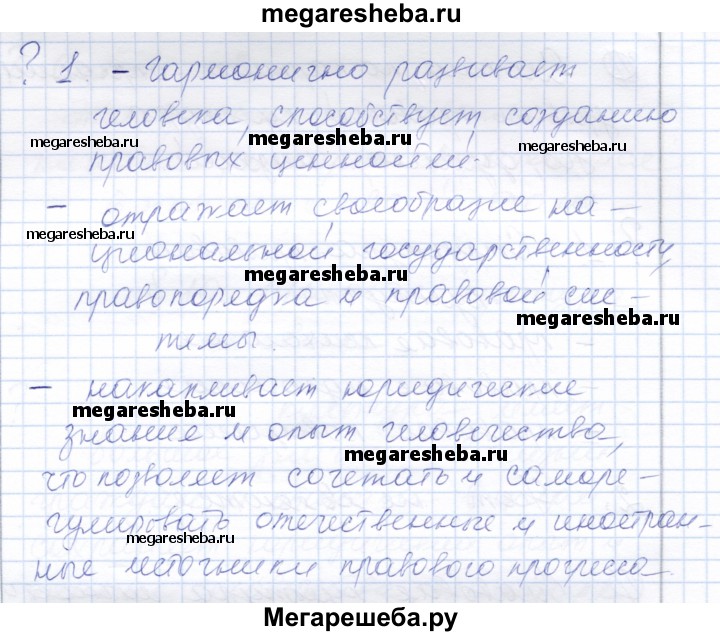 megaresheba.ru
? 1. - Гармонично развивает
человека, способствует созданию
megaresheba.ru
megaresheba.ru
правовых ценностей.
- отражает своеобразие на-
megaresheba.ru
циональной государственности,
megaresheba.ru
правопорядка и правовой сис-
megaresheba.ru
темы.
- накапливает юридические
megaresheba.ru
знание и опыт человечества,
megaresheba.ru
что позволяет сочетать и саморе-
гулировать отечественные и иностран-
megaresheba.ru
ные источники правового прогресса.
Мегарешеба.ру